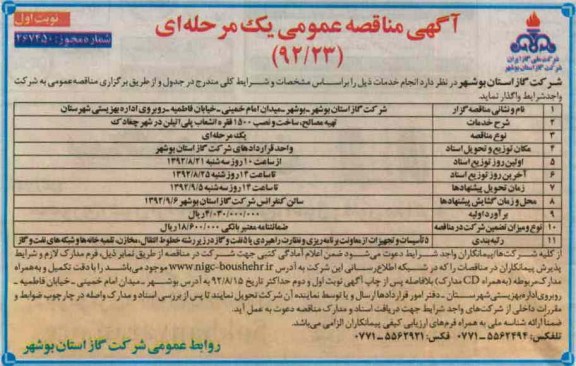 نوبت اول
شماره مجوز: ۲۶۷۴۵۰
آگهی مناقصه عمومی یک مرحله‌ای
(۹۲/۲۳)
شرکت ملی گاز ایران
شرکت گاز استان بوشهر
شرکت گاز استان بوشهر در نظر دارد انجام خدمات ذیل را براساس مشخصات و شرایط کلی مندرج در جدول و از طریق برگزاری مناقصه عمومی به شرکت
واجد شرایط واگذار نماید.
۱ نام و نشانی مناقصه گزار شرکت گاز استان بوشهر_بوشهر_میدان امام خمینی_خیابان فاطمیه_روبروی اداره بهزیستی شهرستان
۲ شرح خدمات تهیه مصالح، ساخت و نصب ۱۵۰۰ فقره انشعاب پلی اتیلن در شهر چغادک
۳ نوع مناقصه یک مرحله‌ای
۴ مکان توزیع و تحویل اسناد واحد قراردادهای شرکت گاز استان بوشهر
۵ اولین روز توزیع اسناد از ساعت ۱۰ روز شنبه ۱۳۹۲/۸/۲۱
۶ آخرین روز توزیع اسناد تا ساعت ۱۴ روز شنبه ۱۳۹۲/۸/۲۵
۷ زمان تحویل پیشنهادها تا ساعت ۱۴ روز سه شنبه ۱۳۹۲/۹/۵
۸ محل و زمان گشایش پیشنهادها سالن کنفرانس شرکت گاز استان بوشهر ۱۳۹۲/۹/۶
۹ برآورد اولیه ۴/۰۳۰/۰۰۰/۰۰۰ریال
۱۰ نوع و میزان تضمین شرکت در مناقصه ضمانتنامه معتبر بانکی ۱۸/۶۰۰/۰۰۰ریال
۱۱ رتبه‌بندی ۵ تأسیسات و تجهیزات از معاونت برنامه ریزی و نظارت راهبردی یا ۵ نفت و گاز در زیر رشته خطوط انتقال، مخازن، تلمبه خانه‌ها و شبکه‌های نفت و گاز
از کلیه شرکت‌ها/پیمانکاران واجد شرایط دعوت می‌شود ضمن اعلام آمادگی کتبی جهت شرکت در مناقصه از طریق نمابر ذیل، فرم مدارک لازم و شرایط
پذیرش پیمانکاران در مناقصات را که در شبکه اطلاع‌رسانی این شرکت به آدرس www.nigc-boushehr.ir موجود می‌باشد را با دقت تکمیل و به همراه
مدارک مربوطه (به همراه CD مدارک) بلافاصله پس از چاپ آگهی نوبت اول و دوم حداکثر تاریخ ۹۲/۸/۱۵ به آدرس بوشهر_میدان امام خمینی_خیابان فاطمیه_
روبروی اداره بهزیستی شهرستان_دفتر امور قراردادها ارسال و یا توسط نماینده آن شرکت تحویل نمایند تا پس از بررسی اسناد و مدارک واصله در چارچوب ضوابط و
مقررات داخلی از شرکت‌های واجد شرایط جهت دریافت اسناد و مدارک مناقصه دعوت به عمل آید.
ضمنا ارائه شناسه ملی به همراه فرم‌های ارزیابی کیفی پیمانکاران الزامی می‌باشد.
تلفکس: ۵۵۶۲۴۹۴_۰۷۷۱ فکس: ۵۵۶۲۹۲۱_۰۷۷۱
روابط عمومی شرکت گاز استان بوشهر